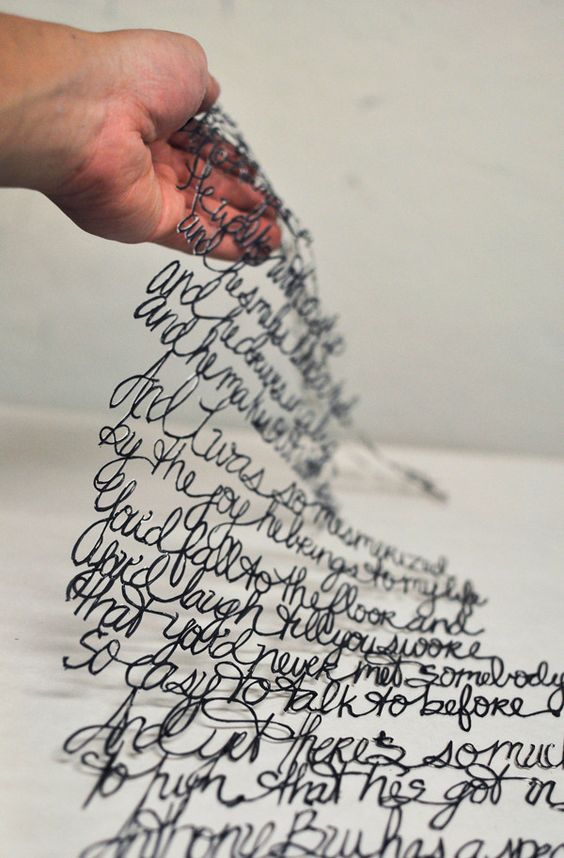 He walks
and he smells like
and he drives
and he makes
And I was so mesmyrized
by the joy he brings to my life
You'd fall to the floor and
you'd laugh till you swore
that you'd never met somebody
So easy to talk to before
And yet there's so much
to him that he's got in
Anthony Bru has a spec